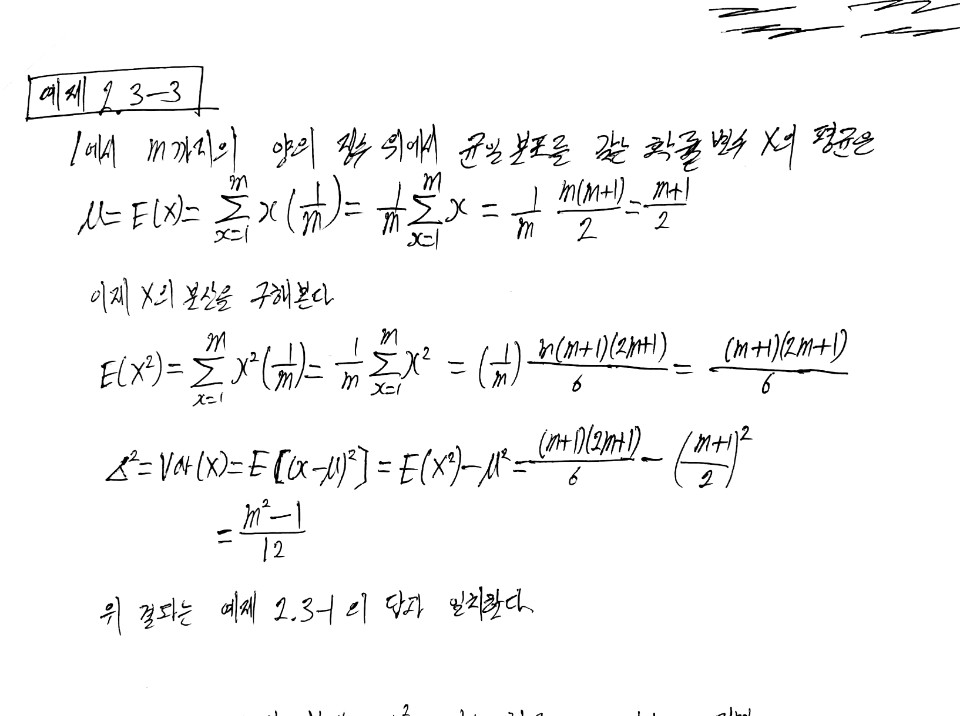 예제 2.3-3
1에서 m까지의 양의 정수 위에서 균일 분포를 갖는 확률 변수 X의 평균은
μ = E(X) = ∑_{x=1}^{m} x(1/m) = 1/m ∑_{x=1}^{m} x = 1/m m(m+1)/2 = m+1/2
이제 X의 분산을 구해본다
E(X²) = ∑_{x=1}^{m} x²(1/m) = 1/m ∑_{x=1}^{m} x² = (1/m) m(m+1)(2m+1)/6 = (m+1)(2m+1)/6
s² = Var(X) = E[(x-μ)²] = E(X²) - μ² = (m+1)(2m+1)/6 - (m+1/2)²
= m²-1/12
위 결과는 예제 2.3-1의 답과 일치한다